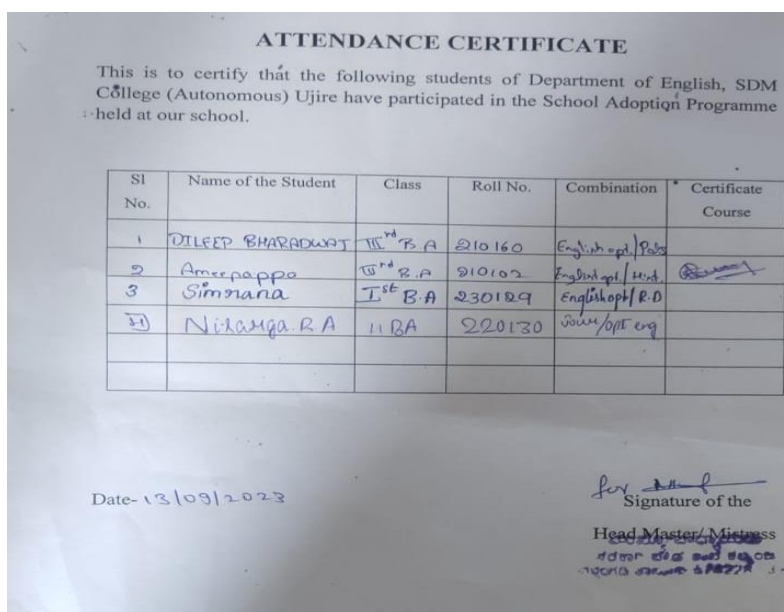 ATTENDANCE CERTIFICATE
This is to certify that the following students of Department of English, SDM
College (Autonomous) Ujire have participated in the School Adoption Programme
held at our school.
Sl No. Name of the Student Class Roll No. Combination Certificate Course
1 DILEEP BHARADWAJ IIIrd B.A 210160 English opt./
2 Ameenappa IIIrd B.A 210102 English opt./Hint.
3 Simrana Ist B.A 230129 English opt/R.D
4 R A II BA 220130 Jour/opt eng
Date- 13/09/2023
for
Signature of the
Head Master/Mistress